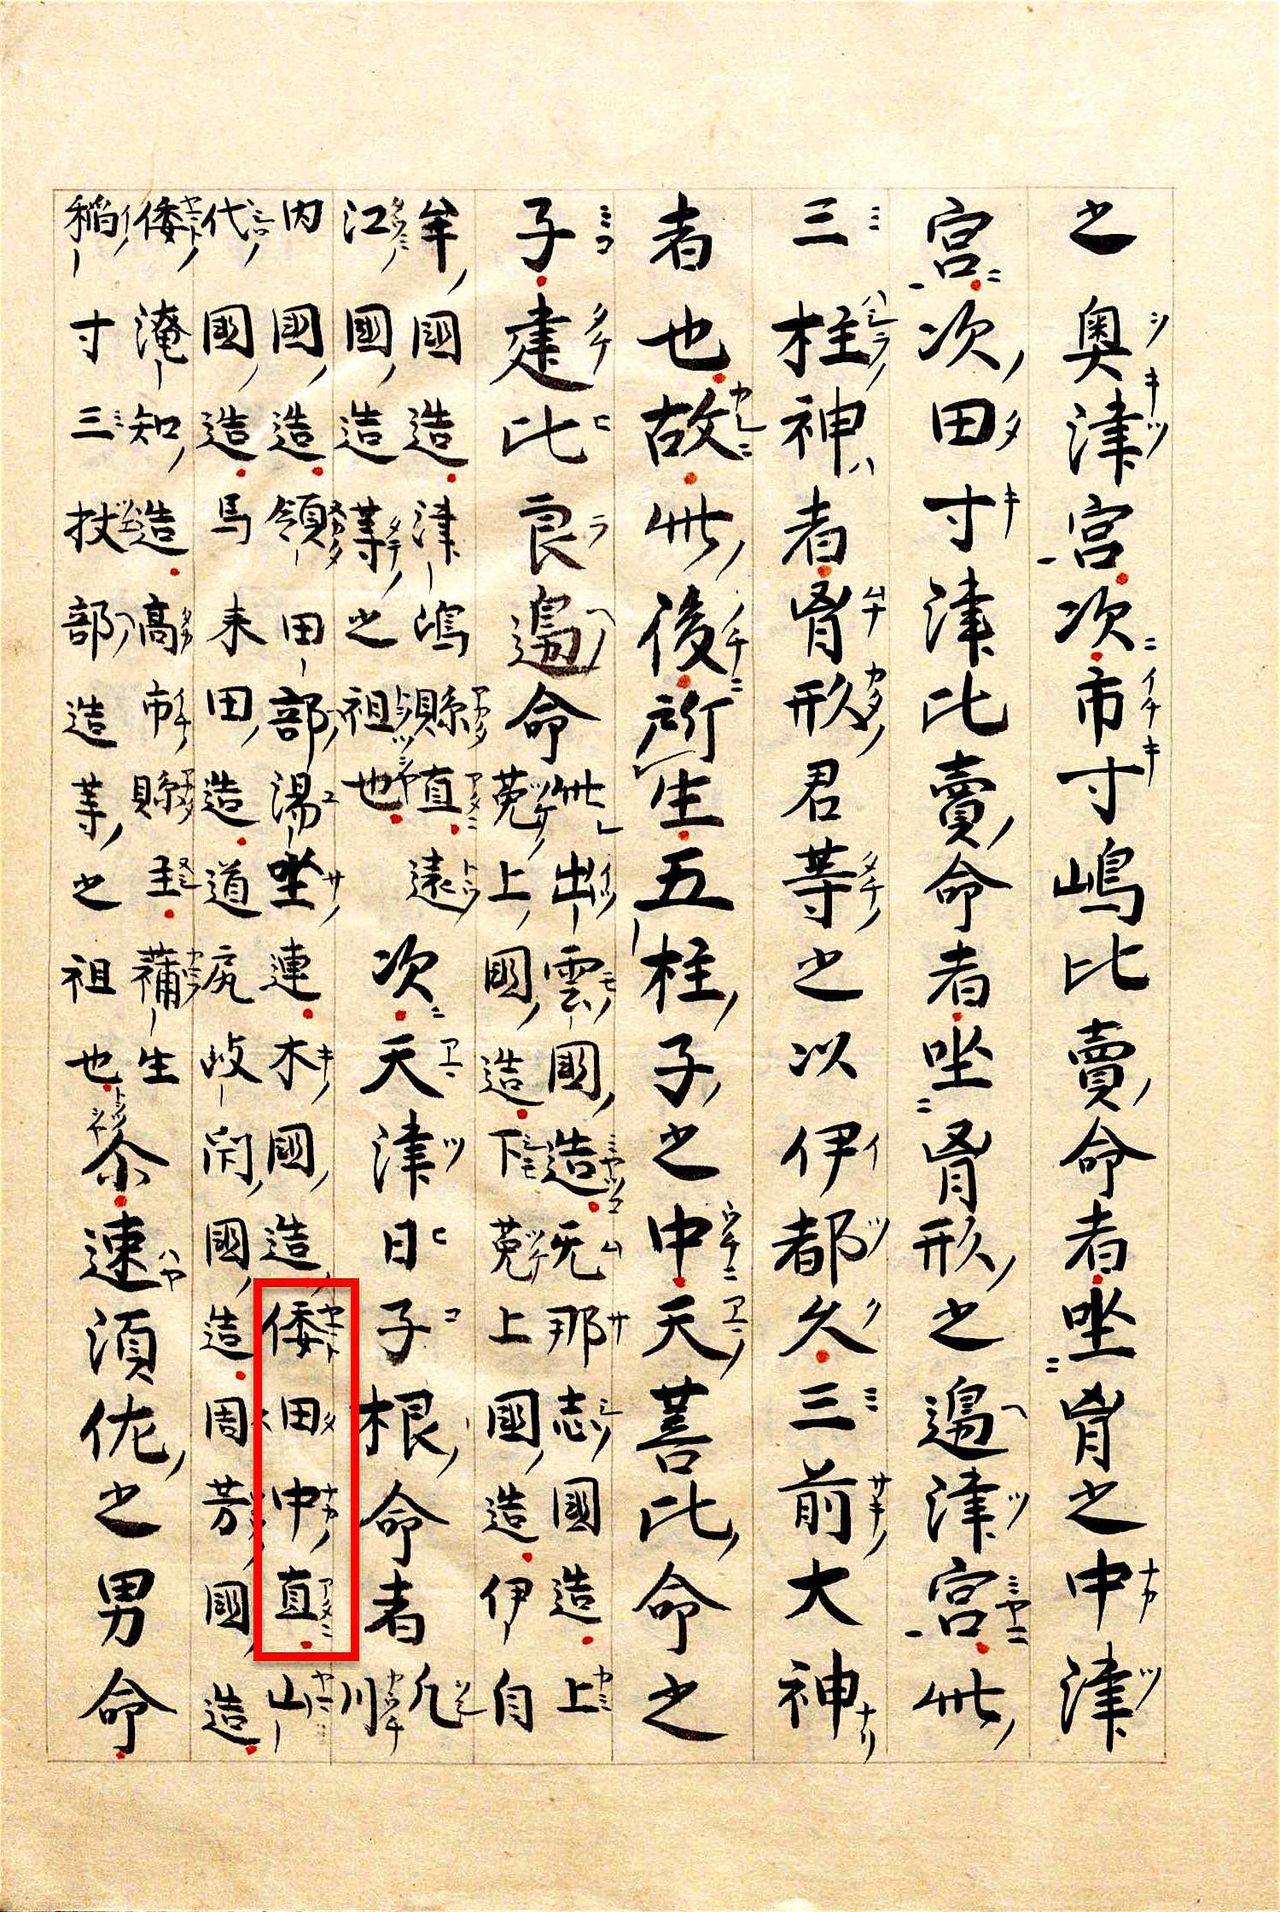 之奥津宮次市寸嶋比賣命者坐胷之中津
宮次田寸津比賣命者坐胷形之邊津宮此
三柱神者胷形君等之以伊都久三前大神
者也故此後所生五柱子之中天菩比命之
子建比良邊命
此出雲國造无那志國造上
菟上國造下菟上國造伊自
牟國造津嶋縣直遠
江國造等之祖也
次天津日子根命者
凡
川
内國造領田部湯坐連木國造倭田中直山
代國造馬来田造道尻岐閇國造周芳國造
倭淹知造高市縣主蒲生
稲寸三扙部造等之祖也
尒速須佐之男命